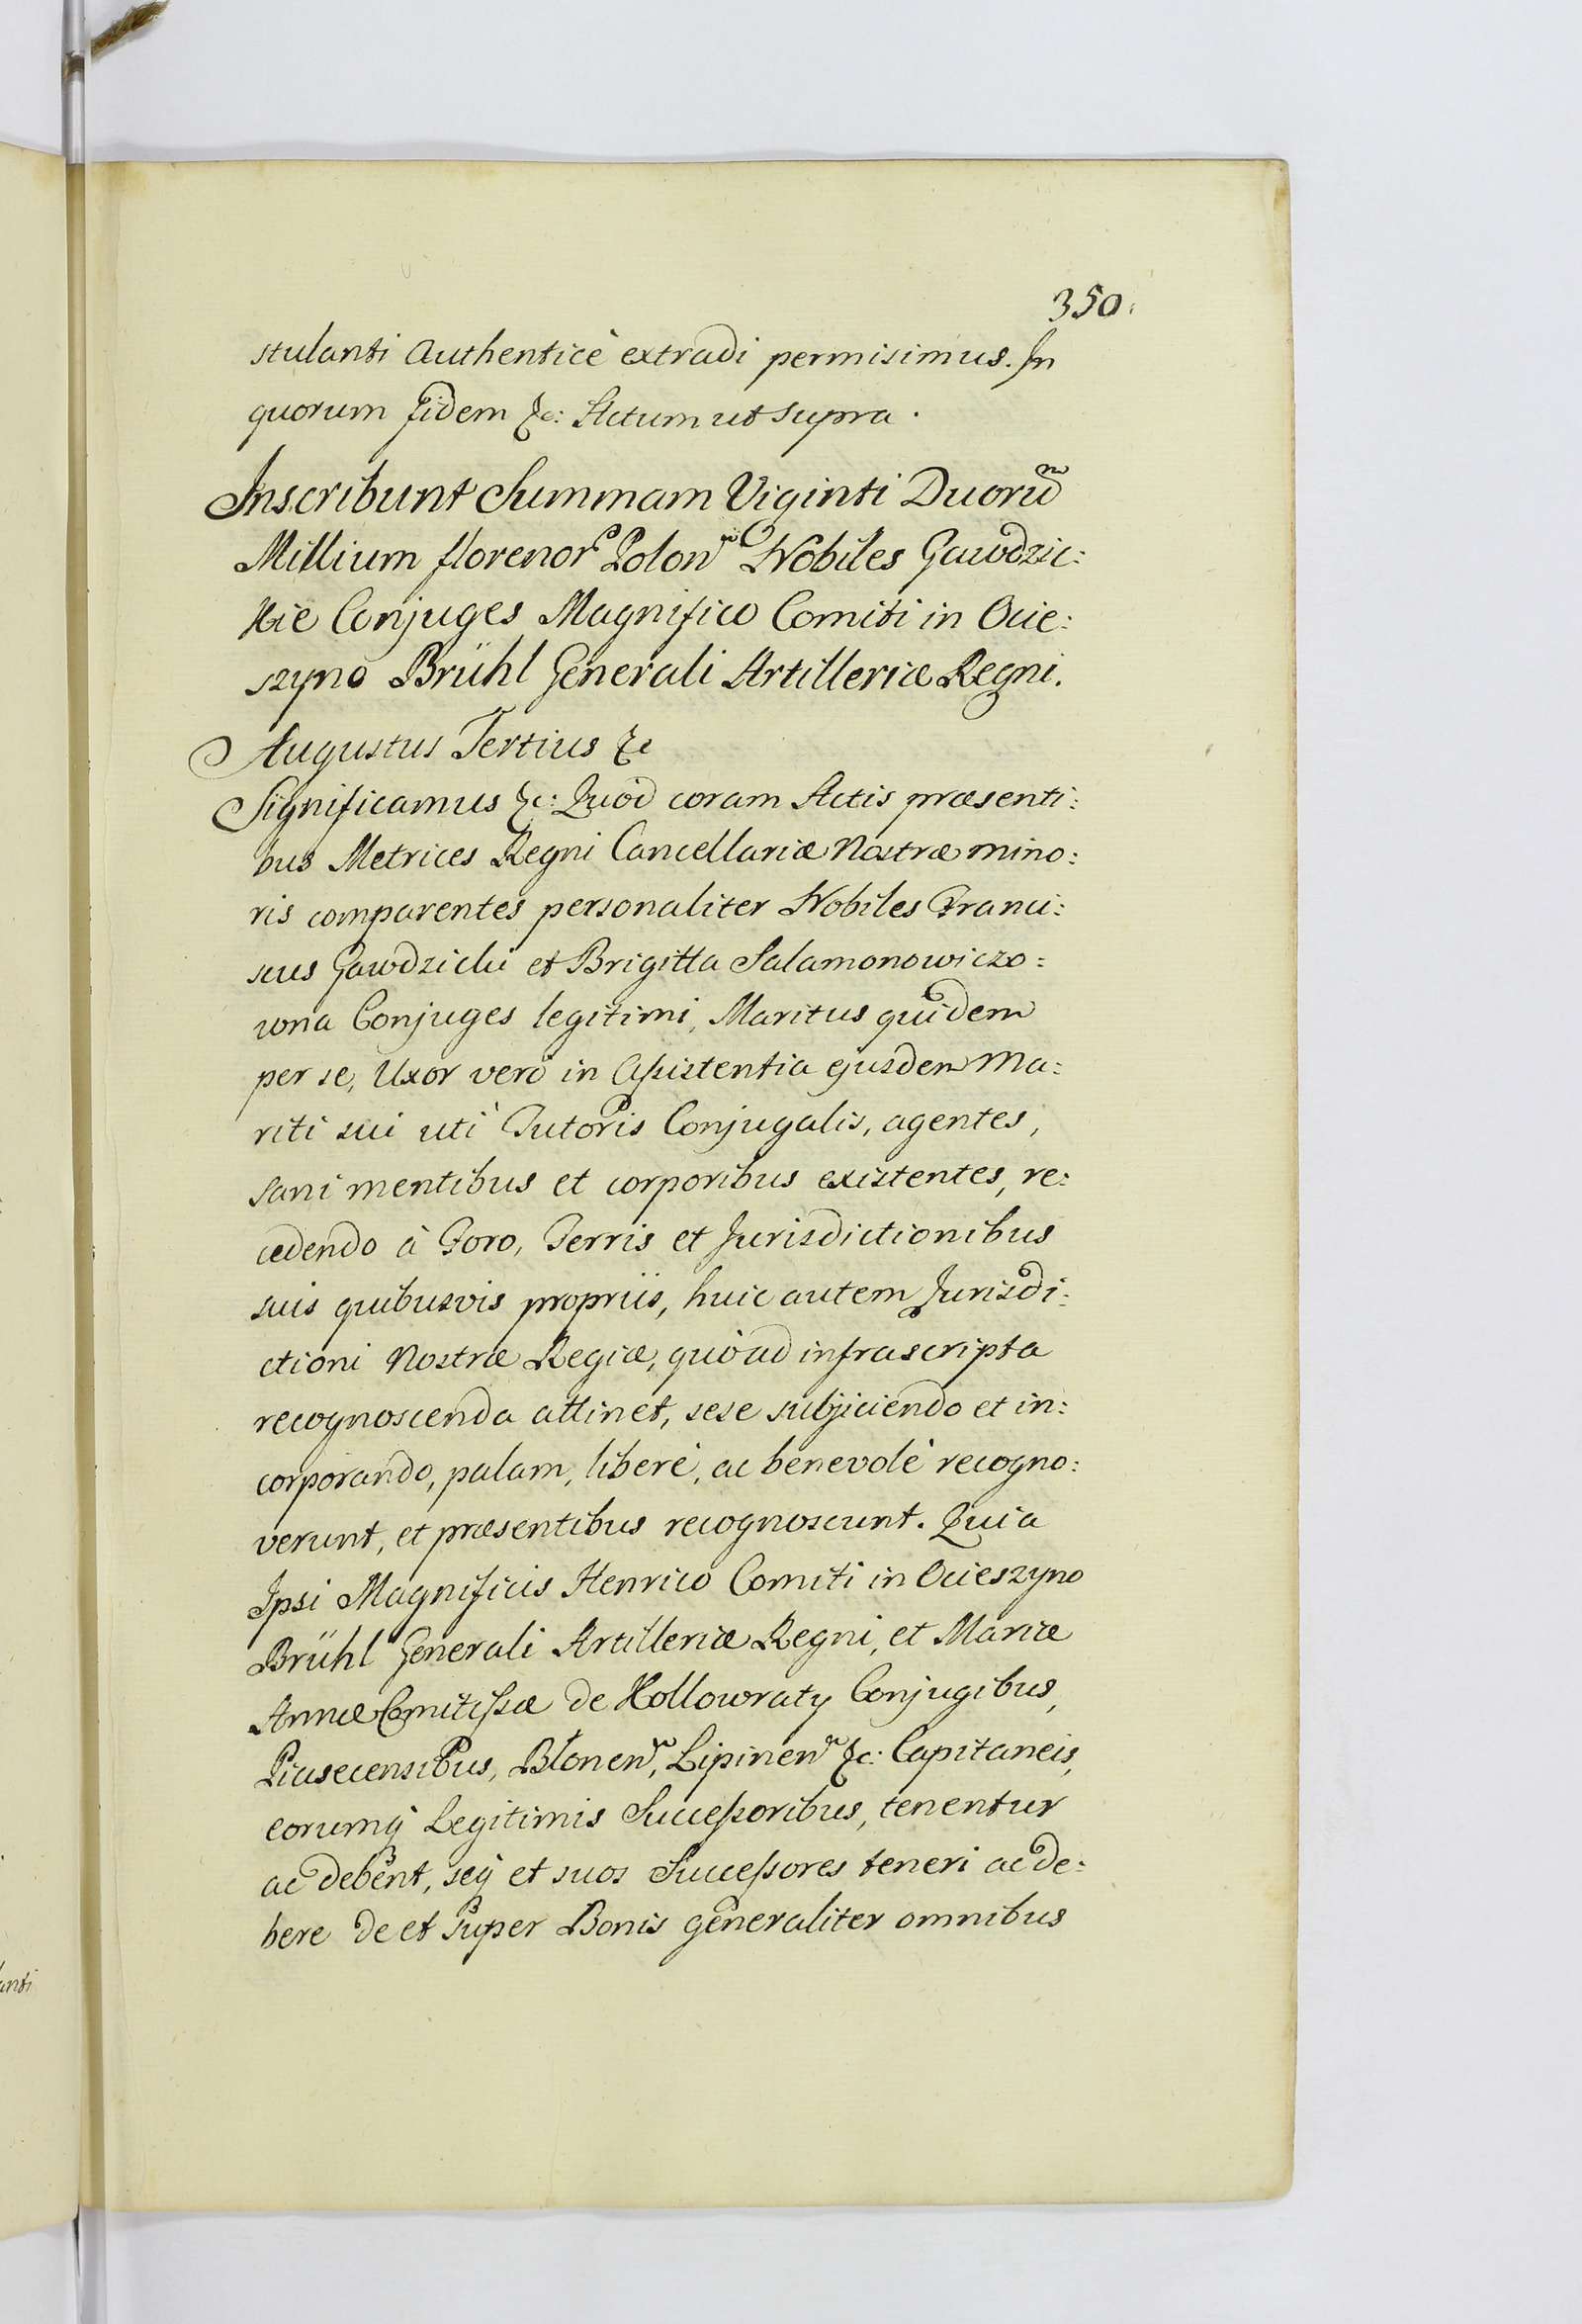 350.
stulanti Authenticè extradi permisimus. In
quorum fidem &c: Actum ut supra.
Inscribunt Summam Viginti Duorũ
Millium florenor Polon Nobiles Gawdzic:
kie Conjuges Magnifico Comiti in Ocie:
szyno Brühl Generali Artilleriæ Regni.
Augustus Tertius &c
Significamus &c: Quòd coram Actis præsenti:
bus Metrices Regni Cancellariæ Nostræ mino:
ris comparentes personaliter Nobiles Franci:
scus Gawdzicki et Brigitta Salamonowiczo:
wna Conjuges legitimi, Maritus quidem
per se, Uxor verò in Assistentia ejusdem Ma:
riti sui uti Tutoris Conjugalis, agentes,
sani mentibus et corporibus existentes, re:
cedendo à Foro, Terris et Jurisdictionibus
suis quibusvis propriis, huic autem Jurisdi:
ctioni Nostræ Regiæ, quò ad infrascripta
recognoscenda attinet, sese subjiciendo et in:
corporando, palam, liberè, ac benevolè recogno:
verunt, et præsentibus recognoscunt. Quia
Ipsi Magnificis Henrico Comiti in Ocieszyno
Brühl Generali Artilleriæ Regni, et Mariæ
Annæ Comitissæ de Kollowraty Conjugibus,
Piasecensibus, Blonen, Lipinen &c: Capitaneis,
eorumq Legitimis Successoribus, tenentur
ac debent, seq et suos Successores teneri ac de:
bere de et super Bonis generaliter omnibus